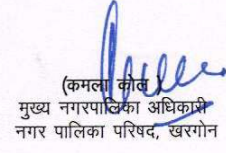 (कमला कोल)
मुख्य नगरपालिका अधिकारी
नगर पालिका परिषद, खरगोन